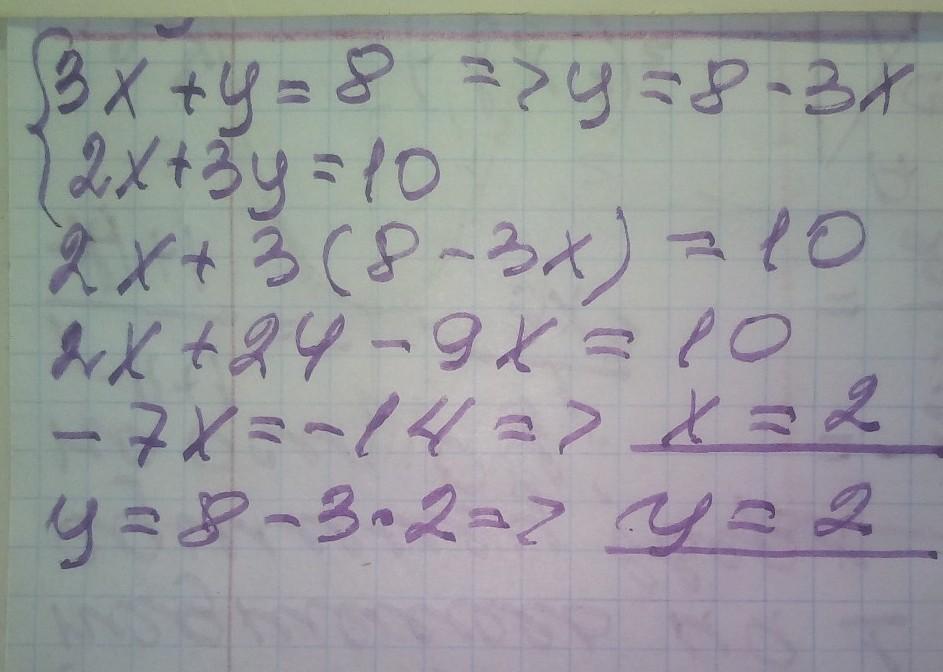 3x + y = 8 => y = 8 - 3x
2x + 3y = 10
2x + 3(8 - 3x) = 10
2x + 24 - 9x = 10
- 7x = -14 => x = 2
y = 8 - 3 · 2 => y = 2